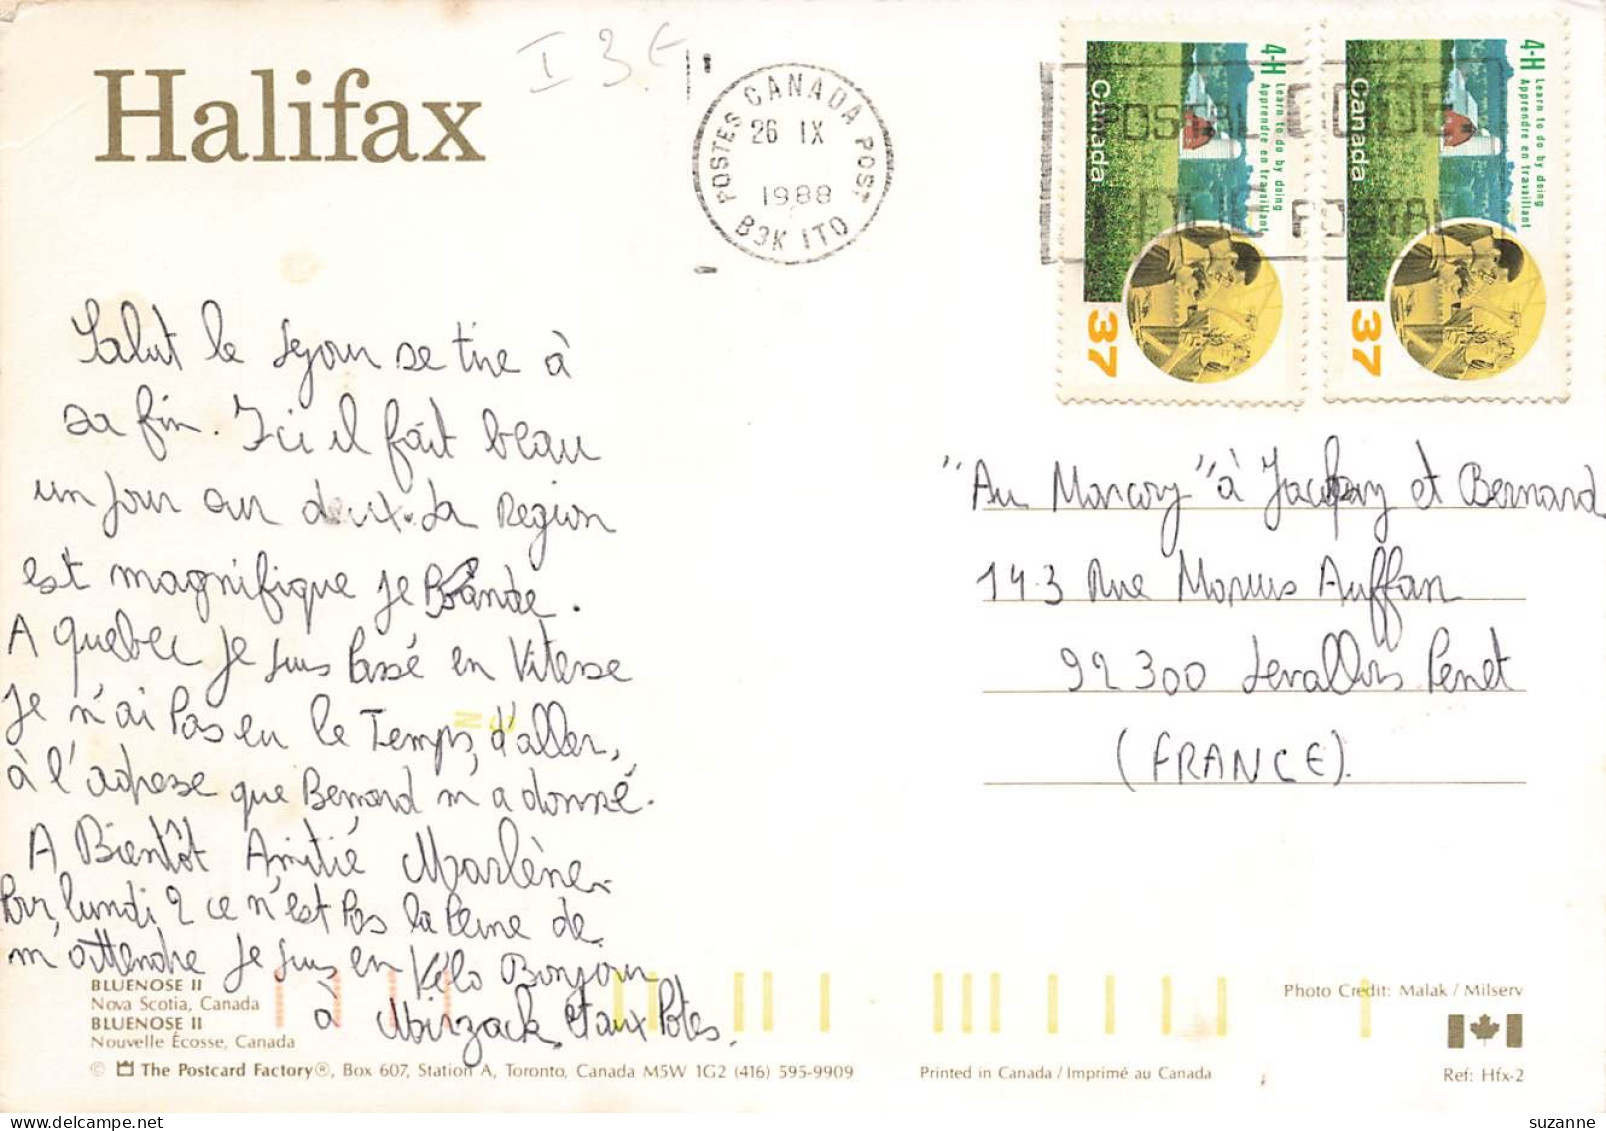 Halifax
I 3€
POSTES CANADA POST
26 IX
1988
B3K 1T0
POSTAL CODE
CODE POSTAL
4-H Learn to do by doing
Apprendre en travaillant
Canada
37
4-H Learn to do by doing
Apprendre en travaillant
Canada
37
Salut le séjour se tire à
sa fin. Ici il fait beau
un jour sur deux. La Region
est magnifique je
A quebec je suis Passé en Vitesse
je n'ai Pas eu le Temps d'aller,
à l'adresse que Bernard m'a donné.
A Bientôt Amitié Marlène
Pour lundi 2 ce n'est Pas la Peine de
m'attendre je suis en Vélo Bonjour
à et aux Potes.
"Au Marcory" à et Bernard
143 Rue Auffan
92300 Levallois Perret
(FRANCE).
BLUENOSE II
Nova Scotia, Canada
BLUENOSE II
Nouvelle Écosse, Canada
© The Postcard Factory®, Box 607, Station A, Toronto, Canada M5W 1G2 (416) 595-9909
Printed in Canada / Imprimé au Canada
Photo Credit: Malak / Milserv
Ref: Hfx-2
suzanne